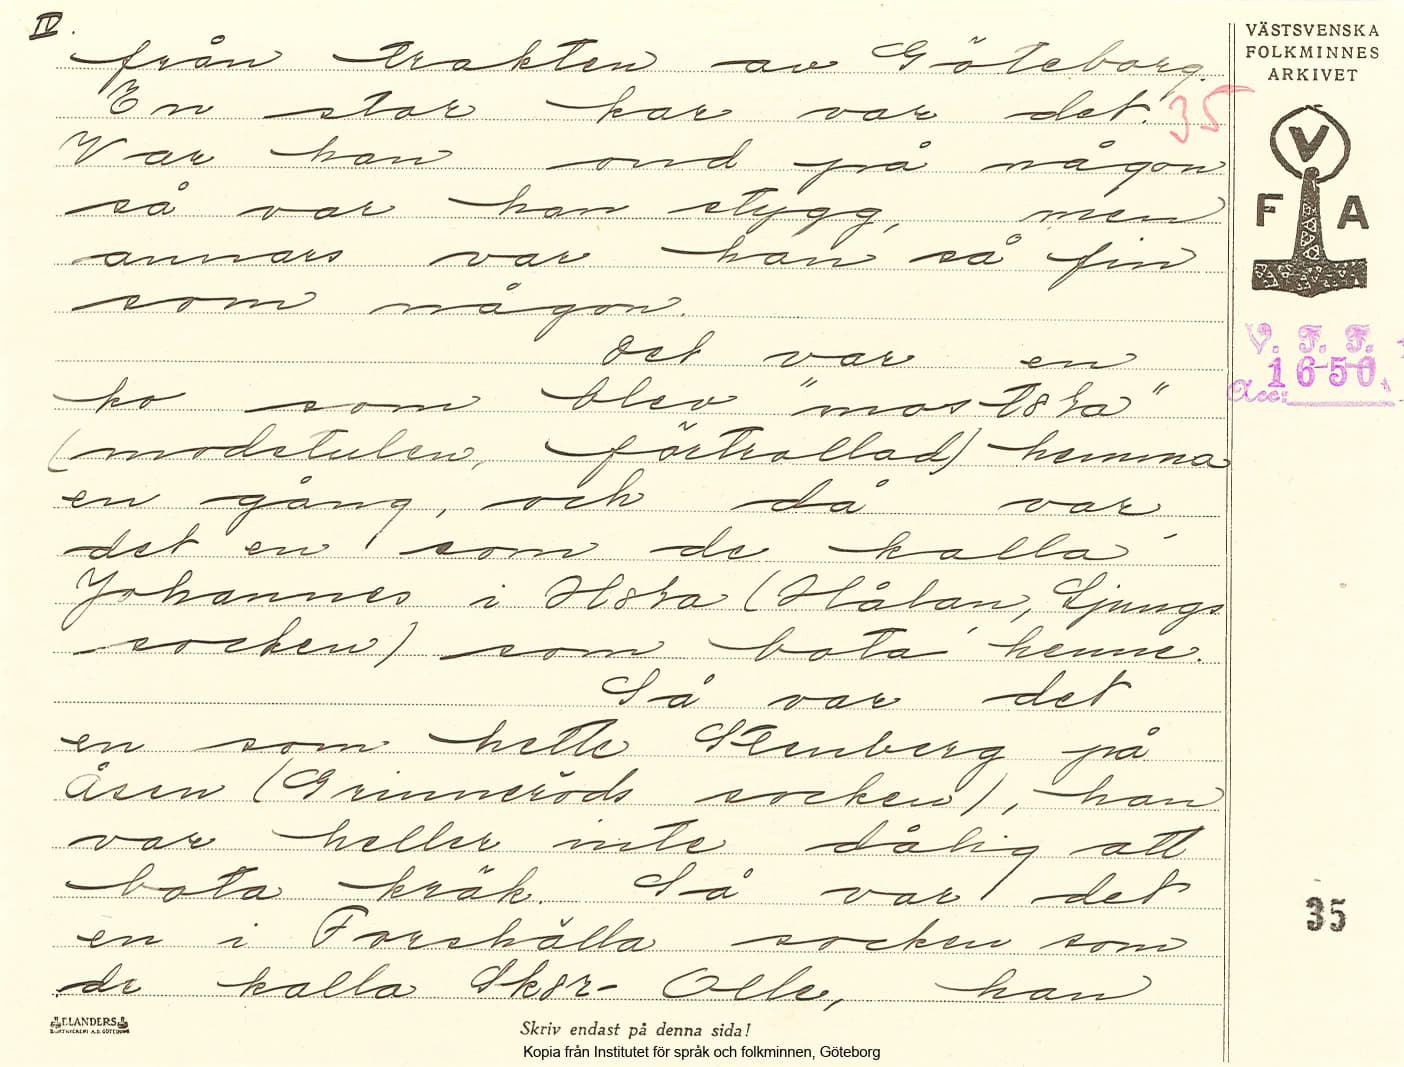 IV.
från trakten av Göteborg.
En stor kar var det.
35
Var han ond på någon
så var han stygg, men
annars var han så fin
som någon.
Det var en
ko som blev "most8ka"
(modstulen, förtrollad) hemma
en gång, och då var
det en som de kalla'
Johannes i H8ka (Hålan, Ljungs
socken) som bota' henne.
Så var det
en som hette Stenberg på
Åsen (Grinneröds socken), han
var heller inte dålig att
bota kräk. Så var det
en i Forshälla socken som
de kalla Sk8r-Olle, han
VÄSTSVENSKA
FOLKMINNES
ARKIVET
V
F A
V. F. F.
1650
Acc:
35
ELANDERS
Skriv endast på denna sida!
Kopia från Institutet för språk och folkminnen, Göteborg